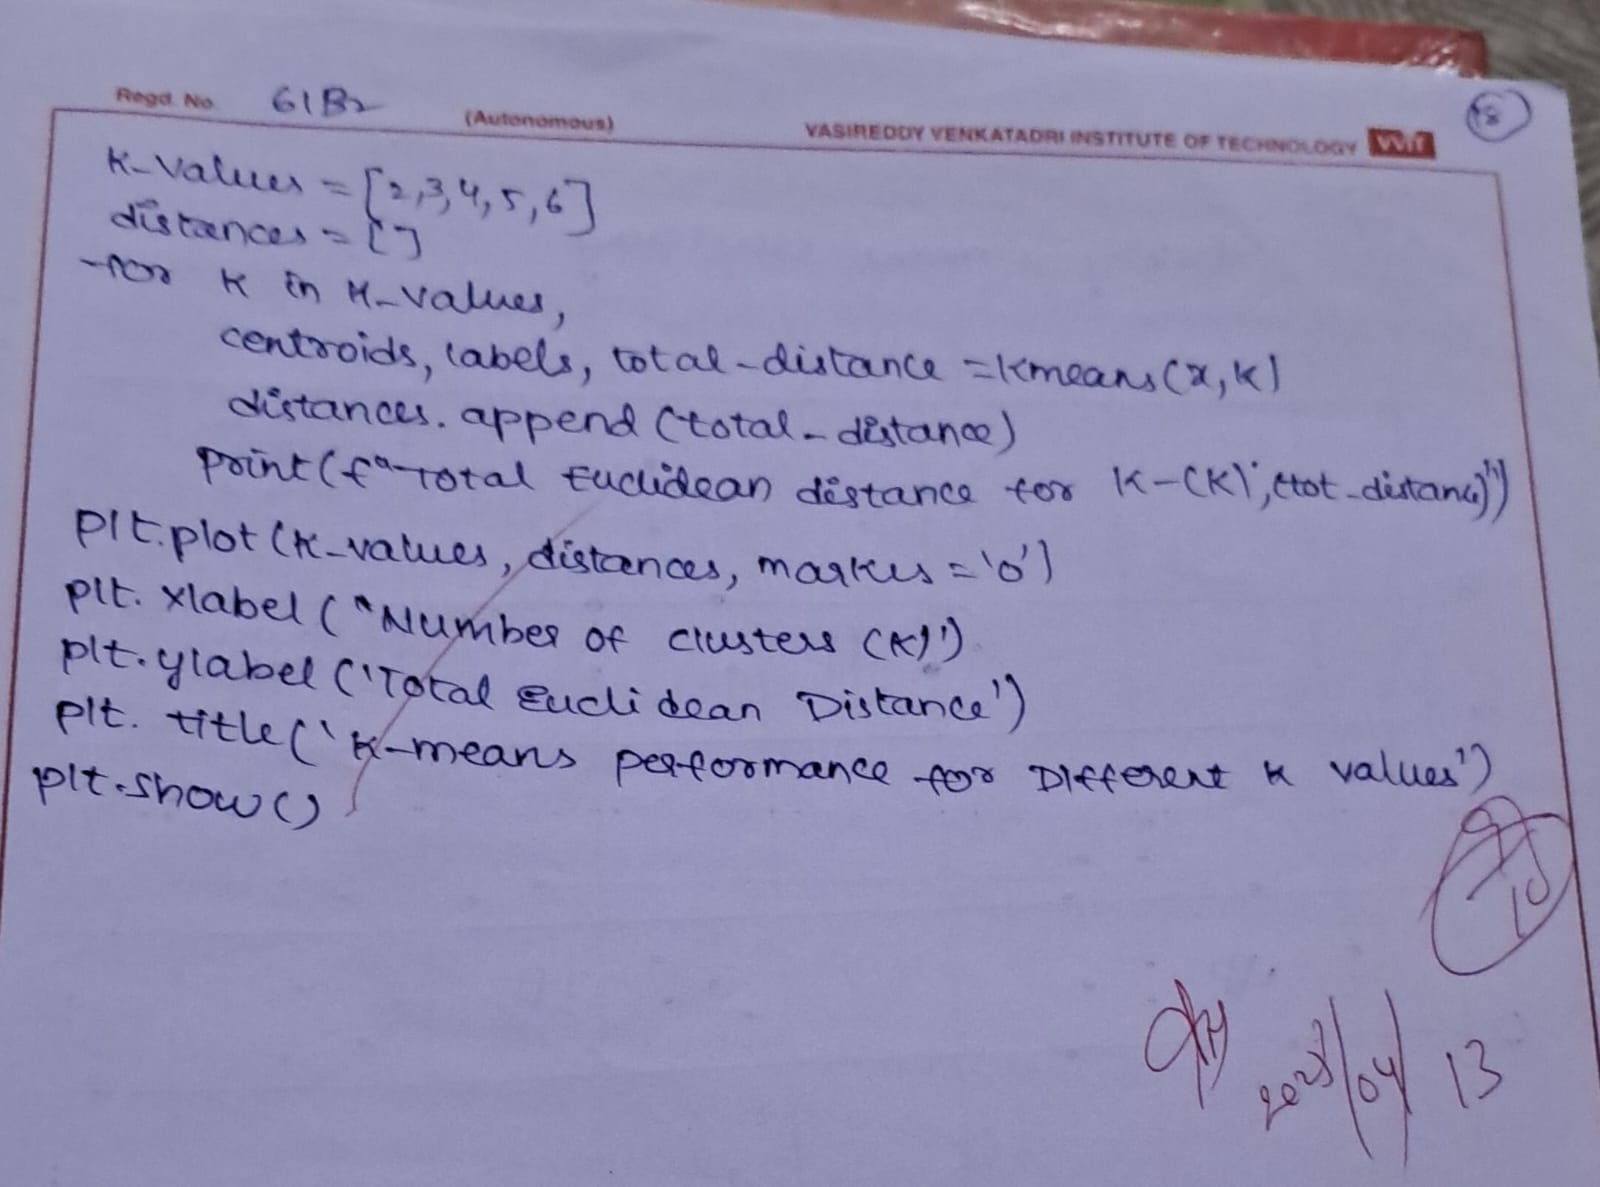 Regd. No. 61B2
(Autonomous)
VASIREDDY VENKATADRI INSTITUTE OF TECHNOLOGY VVIT
18
K-values = [2,3,4,5,6]
distances = []
for K in K-values,
centroids, labels, total-distance = Kmeans(x, K)
distances. append (total-distance)
Print(f"Total Euclidean distance for K-(K)',(tot-distance)")
plt.plot (K-values, distances, markes = 'o')
plt. xlabel ("Number of clusters (K)")
plt.ylabel ('Total Euclidean Distance')
plt. title('K-means performance for Different K values')
plt.show()
10
2025/04/13